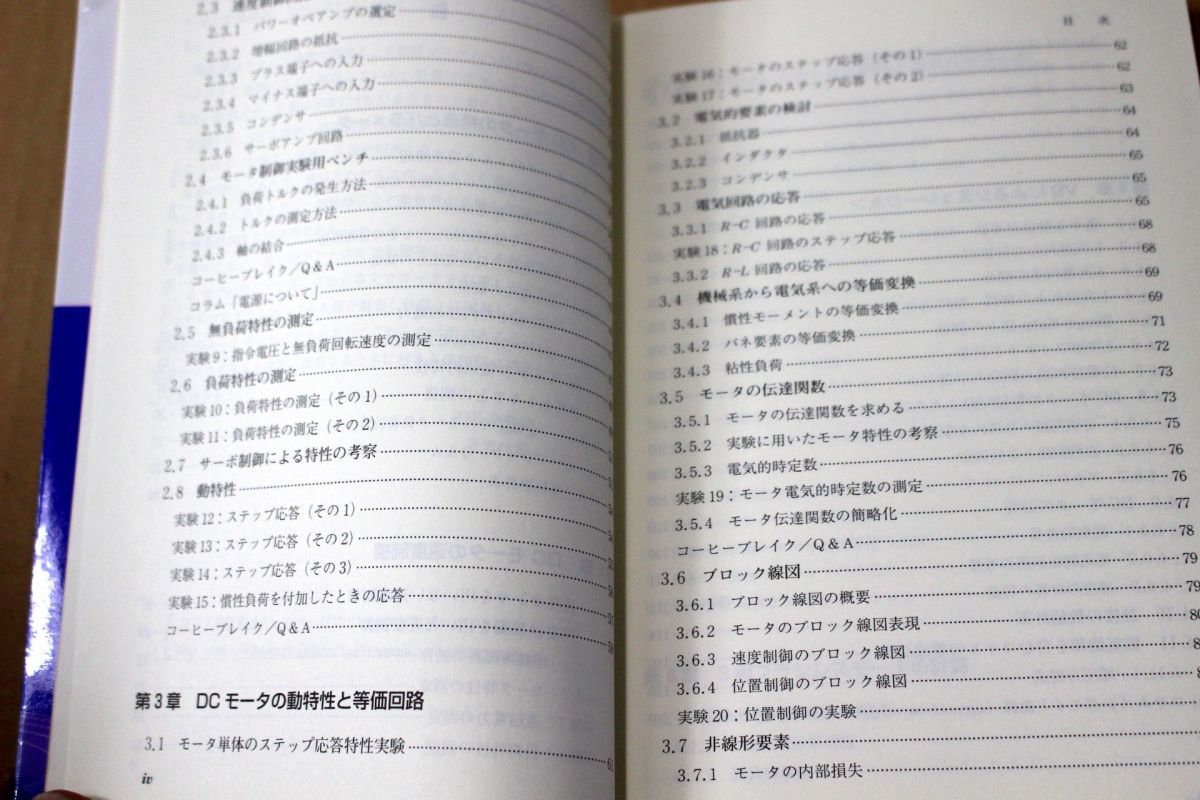 2.3 速度制御回路
2.3.1 パワーオペアンプの選定
2.3.2 増幅回路の抵抗
2.3.3 プラス端子への入力
2.3.4 マイナス端子への入力
2.3.5 コンデンサ
2.3.6 サーボアンプ回路
2.4 モータ制御実験用ベンチ
2.4.1 負荷トルクの発生方法
2.4.2 トルクの測定方法
2.4.3 軸の結合
コーヒーブレイク/Q&A
コラム「電源について」
2.5 無負荷特性の測定
実験9:指令電圧と無負荷回転速度の測定
2.6 負荷特性の測定
実験10:負荷特性の測定(その1)
実験11:負荷特性の測定(その2)
2.7 サーボ制御による特性の考察
2.8 動特性
実験12:ステップ応答(その1)
実験13:ステップ応答(その2)
実験14:ステップ応答(その3)
実験15:慣性負荷を付加したときの応答
コーヒーブレイク/Q&A
第3章 DCモータの動特性と等価回路
3.1 モータ単体のステップ応答特性実験 61
iv
目次
実験16:モータのステップ応答(その1) 62
実験17:モータのステップ応答(その2) 62
3.2 電気的要素の検討 63
3.2.1 抵抗器 64
3.2.2 インダクタ 64
3.2.3 コンデンサ 65
3.3 電気回路の応答 65
3.3.1 R-C回路の応答 65
実験18:R-C回路のステップ応答 68
3.3.2 R-L回路の応答 68
3.4 機械系から電気系への等価変換 69
3.4.1 慣性モーメントの等価変換 69
3.4.2 バネ要素の等価変換 71
3.4.3 粘性負荷 72
3.5 モータの伝達関数 73
3.5.1 モータの伝達関数を求める 73
3.5.2 実験に用いたモータ特性の考察 75
3.5.3 電気的時定数 76
実験19:モータ電気的時定数の測定 76
3.5.4 モータ伝達関数の簡略化 77
コーヒーブレイク/Q&A 78
3.6 ブロック線図 79
3.6.1 ブロック線図の概要 79
3.6.2 モータのブロック線図表現 80
3.6.3 速度制御のブロック線図
3.6.4 位置制御のブロック線図
実験20:位置制御の実験
3.7 非線形要素
3.7.1 モータの内部損失